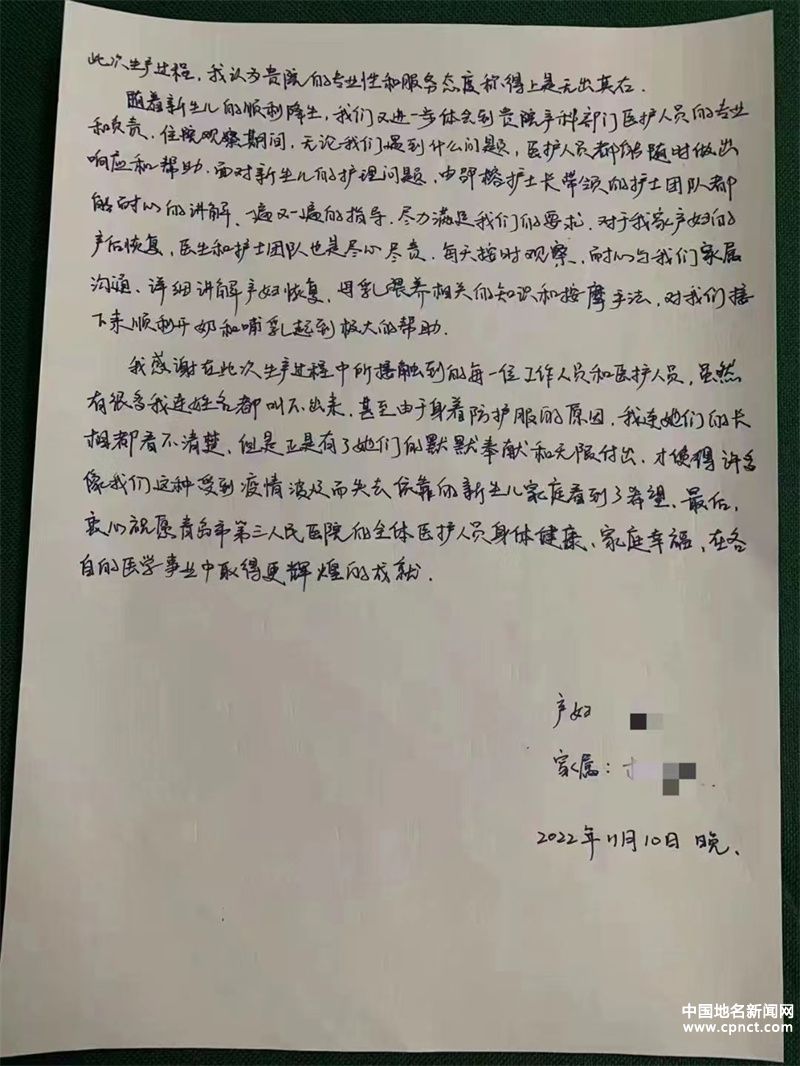 此次生产过程，我认为贵院的专业性和服务态度称得上是无出其右．
随着新生儿的顺利降生，我们又进一步体会到贵院产科部门医护人员的专业
和负责．住院观察期间，无论我们遇到什么问题，医护人员都能随时做出
响应和帮助．面对新生儿的护理问题，由邵榕护士长带领的护士团队都
能耐心的讲解、一遍又一遍的指导．尽力满足我们的要求．对于我家产妇的
产后恢复，医生和护士团队也是尽心尽责．每天按时观察，耐心与我们家属
沟通、详细讲解产妇恢复，母乳喂养相关的知识和按摩手法，对我们接
下来顺利开奶和哺乳起到极大的帮助．
我感谢在此次生产过程中所接触到的每一位工作人员和医护人员，虽然
有很多我连姓名都叫不出来，甚至由于身着防护服的原因，我连她们的长
相都看不清楚，但是正是有了她们的默默奉献和无限付出，才使得许多
像我们这种受到疫情波及而失去依靠的新生儿家庭看到了希望．最后，
衷心祝愿青岛市第三人民医院的全体医护人员身体健康、家庭幸福，在各
自的医学事业中取得更辉煌的成就．
产妇
家属：
2022年11月10日 晚．
中国地名新闻网
www.cpnct.com